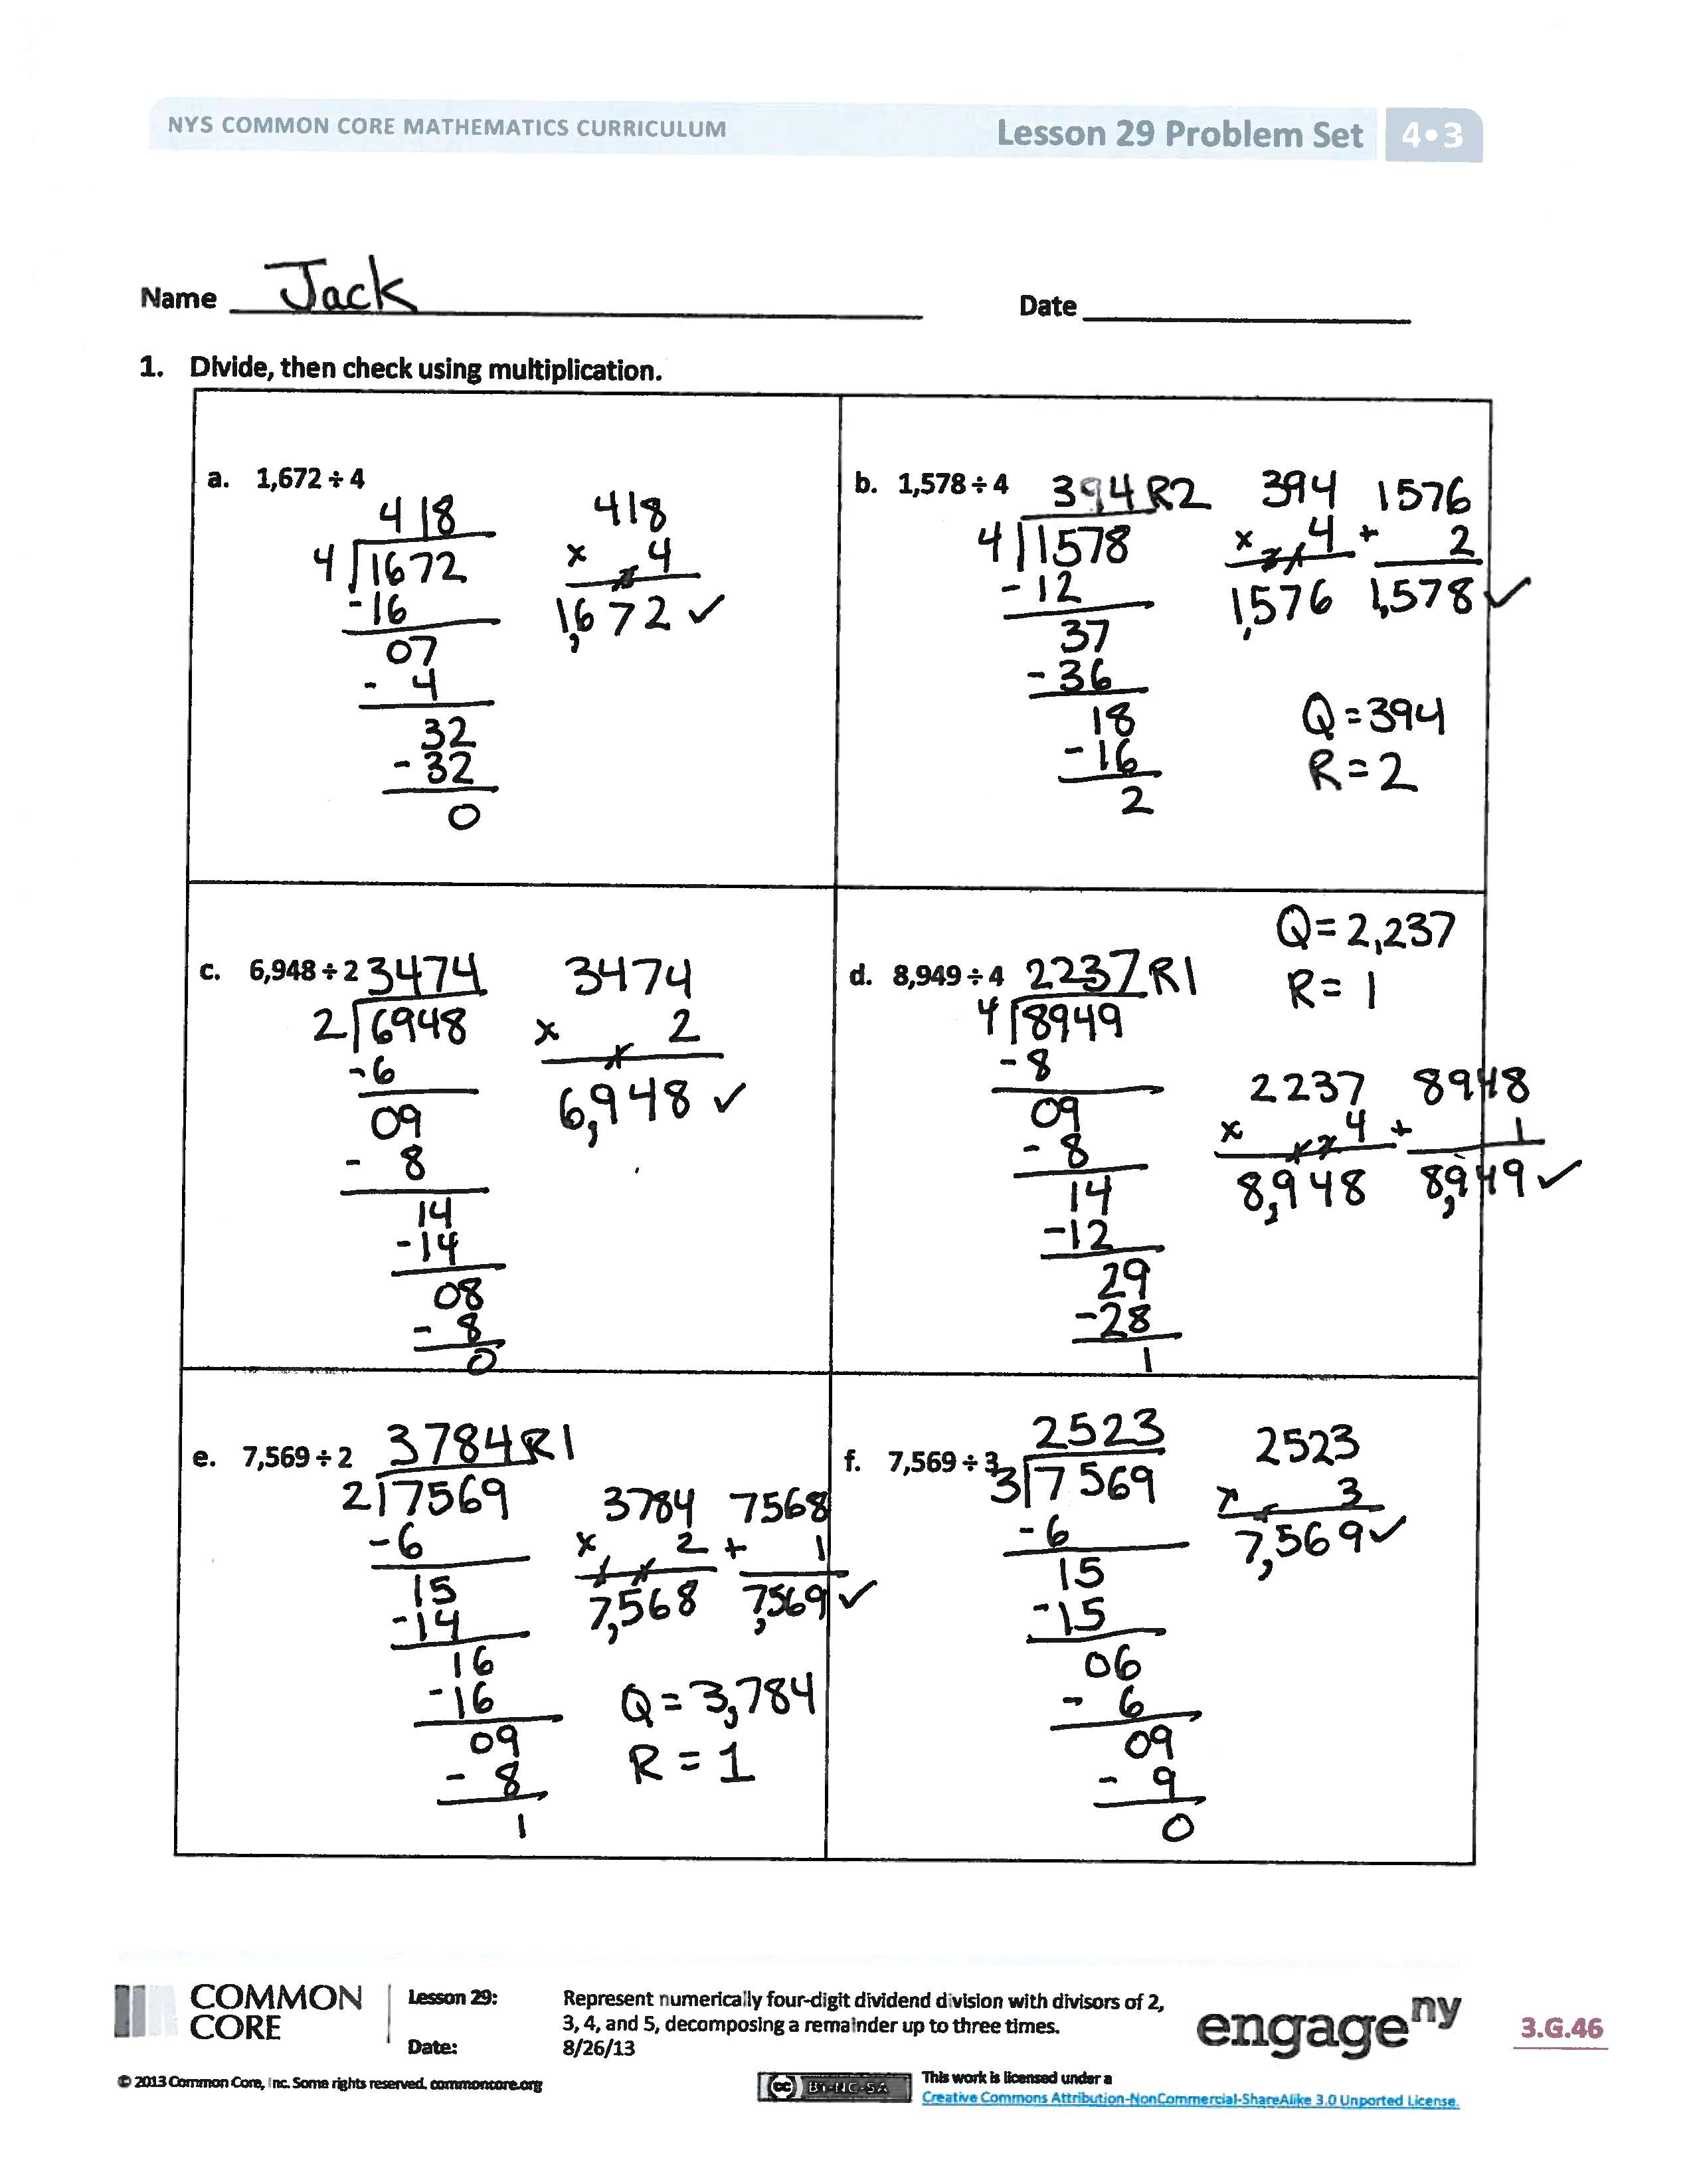 NYS COMMON CORE MATHEMATICS CURRICULUM
Lesson 29 Problem Set 4•3
Name Jack
Date
1. Divide, then check using multiplication.
a. 1,672 ÷ 4
418
4 1672
-16
07
- 4
32
-32
0
418
x 4
1,672 ✓
b. 1,578 ÷ 4
394 R2
4 1578
-12
37
-36
18
-16
2
394
x 4
1,576
1576
+ 2
1,578 ✓
Q = 394
R = 2
c. 6,948 ÷ 2
3474
2 6948
-6
09
- 8
14
-14
08
- 8
0
3474
x 2
6,948 ✓
d. 8,949 ÷ 4
2237 R1
4 8949
-8
09
- 8
14
-12
29
-28
1
Q = 2,237
R = 1
2237
x 4
8,948
8948
+ 1
8,949 ✓
e. 7,569 ÷ 2
3784 R1
2 7569
-6
15
-14
16
-16
09
- 8
1
3784
x 2
7,568
7568
+ 1
7,569 ✓
Q = 3,784
R = 1
f. 7,569 ÷ 3
2523
3 7569
-6
15
-15
06
- 6
09
- 9
0
2523
x 3
7,569 ✓
COMMON CORE
Lesson 29: Represent numerically four-digit dividend division with divisors of 2,
3, 4, and 5, decomposing a remainder up to three times.
Date: 8/26/13
engage ny
3.G.46
© 2013 Common Core, Inc. Some rights reserved. commoncore.org
cc BY-NC-SA
This work is licensed under a
Creative Commons Attribution-NonCommercial-ShareAlike 3.0 Unported License.